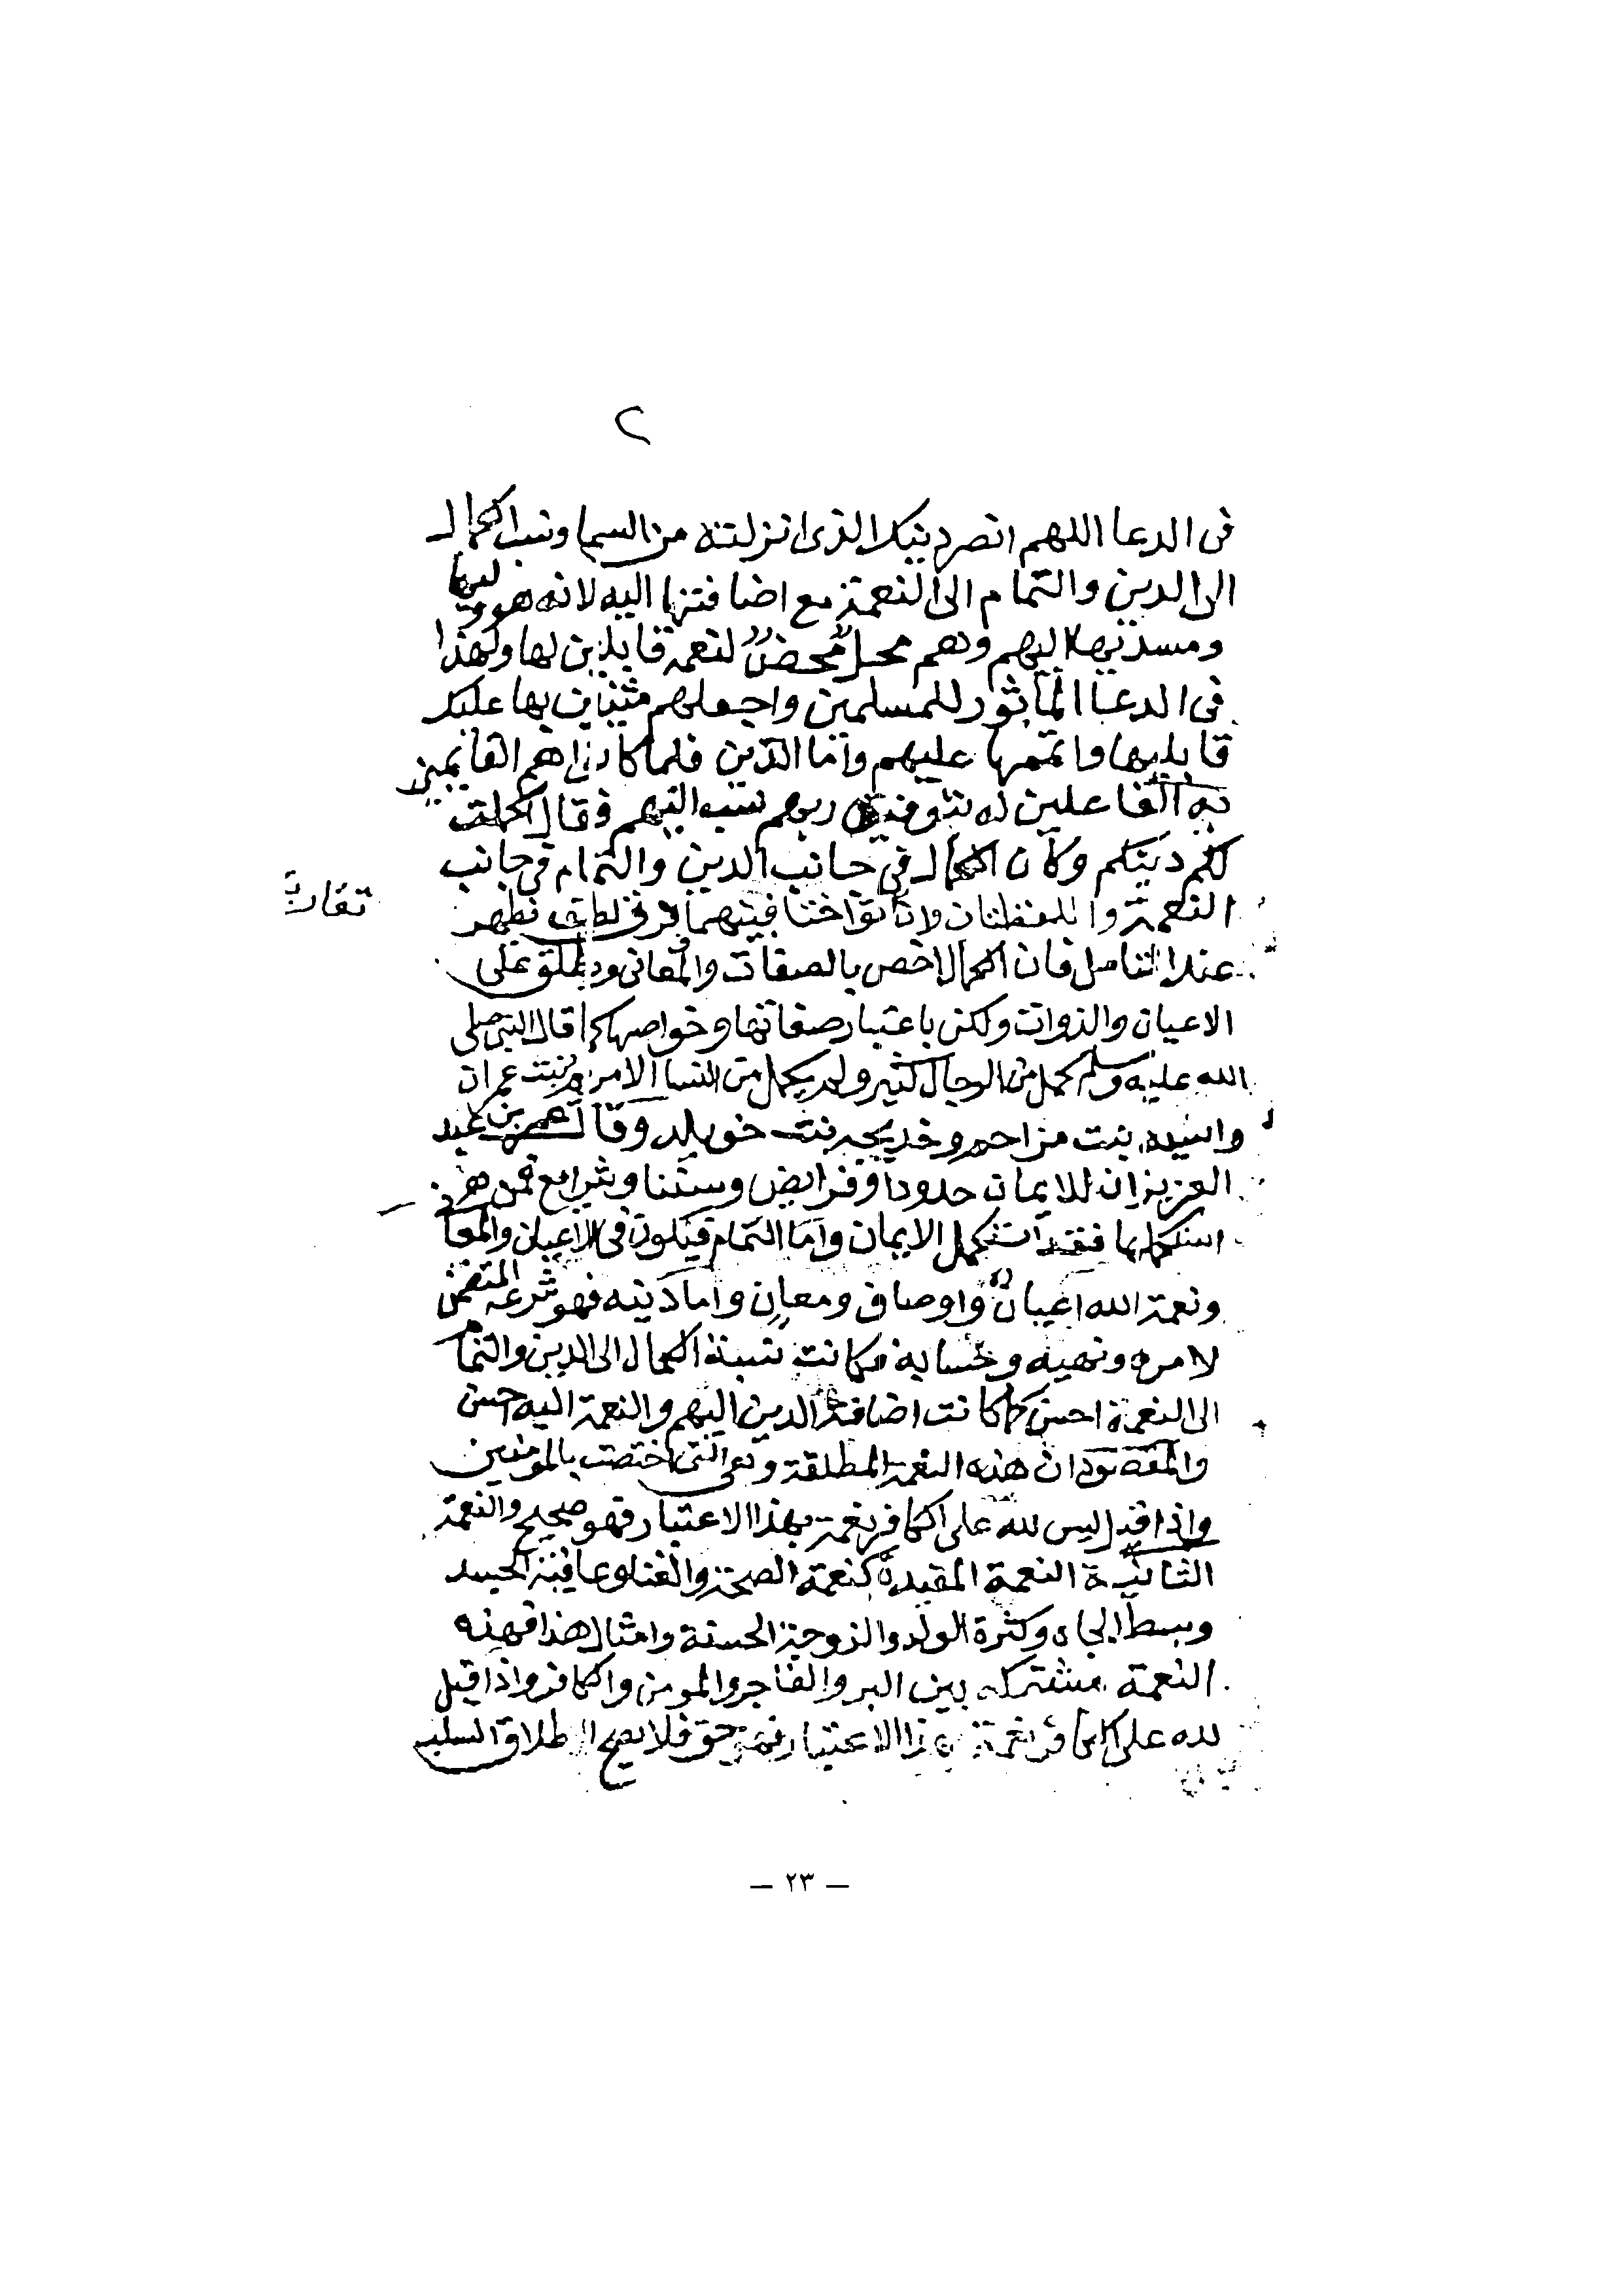 ٢
فى الدعا اللهم انصر دينك الذى انزلته من السما ونسب الكمال
الى الدين والتمام الى النعمة مع اضافتها اليه لانه هو وليها
ومسديها اليهم وهم محلٌ محضٌ لنعمه قابلين لها ولهذا
فى الدعا المأثور للمسلمين واجعلهم مثنين بها عليك
قابليها واتممها عليهم وأما الدين فلما كانوا هم القائمين
به الفاعلين له بتوفيق ربهم نسبه اليهم فقال اكملت
لكم دينكم وكان الكمال فى جانب الدين والتمام فى جانب
النعمة واللفظتان وان تواختا فبينهما فرق لطيف يظهر
تقاربتا
عند التامل فان الكمال اخص بالصفات والمعانى ويطلق على
الاعيان والذوات ولكن باعتبار صفاتها وخواصها كما قال النبى صلى
الله عليه وسلم كمل من الرجال كثير ولم يكمل من النسا الا مريم بنت عمران
واسيه بنت مزاحم وخديجه بنت خويلد وقال عمر بن عبد
العزيز ان للايمان حدودا وفرايض وسننا وشرايع فمن
استكملها فقد استكمل الايمان وأما التمام فيكون فى الاعيان والمعا
ونعمة الله اعيانٌ واوصاف ومعانٍ واما دينه فهو شرعه المتضمن
لامره ونهيه ومحابه فكانت نسبة الكمال الى الدين والتمام
الى النعمة احسن كما كانت اضافة الدين اليهم والنعمة اليه احسن
والمقصود ان هذه النعمة المطلقة وهى التى اختصت بالمومنين
واذا قيل ليس لله على الكافر نعمة بهذا الاعتبار فهو صحيح والنعمة
الثانية النعمة المقيدة كنعمة الصحة والغنا وعافية الجسد
وبسط الجاه وكثرة الولد والزوجة الحسنة وامثال هذا فهذه
النعمة مشتركه بين البر والفاجر والمومن والكافر واذا قيل
لله على الكافر نعمة بهذا الاعتبار فهو حق فلا يصح اطلاق السلب
— ٢٣ —